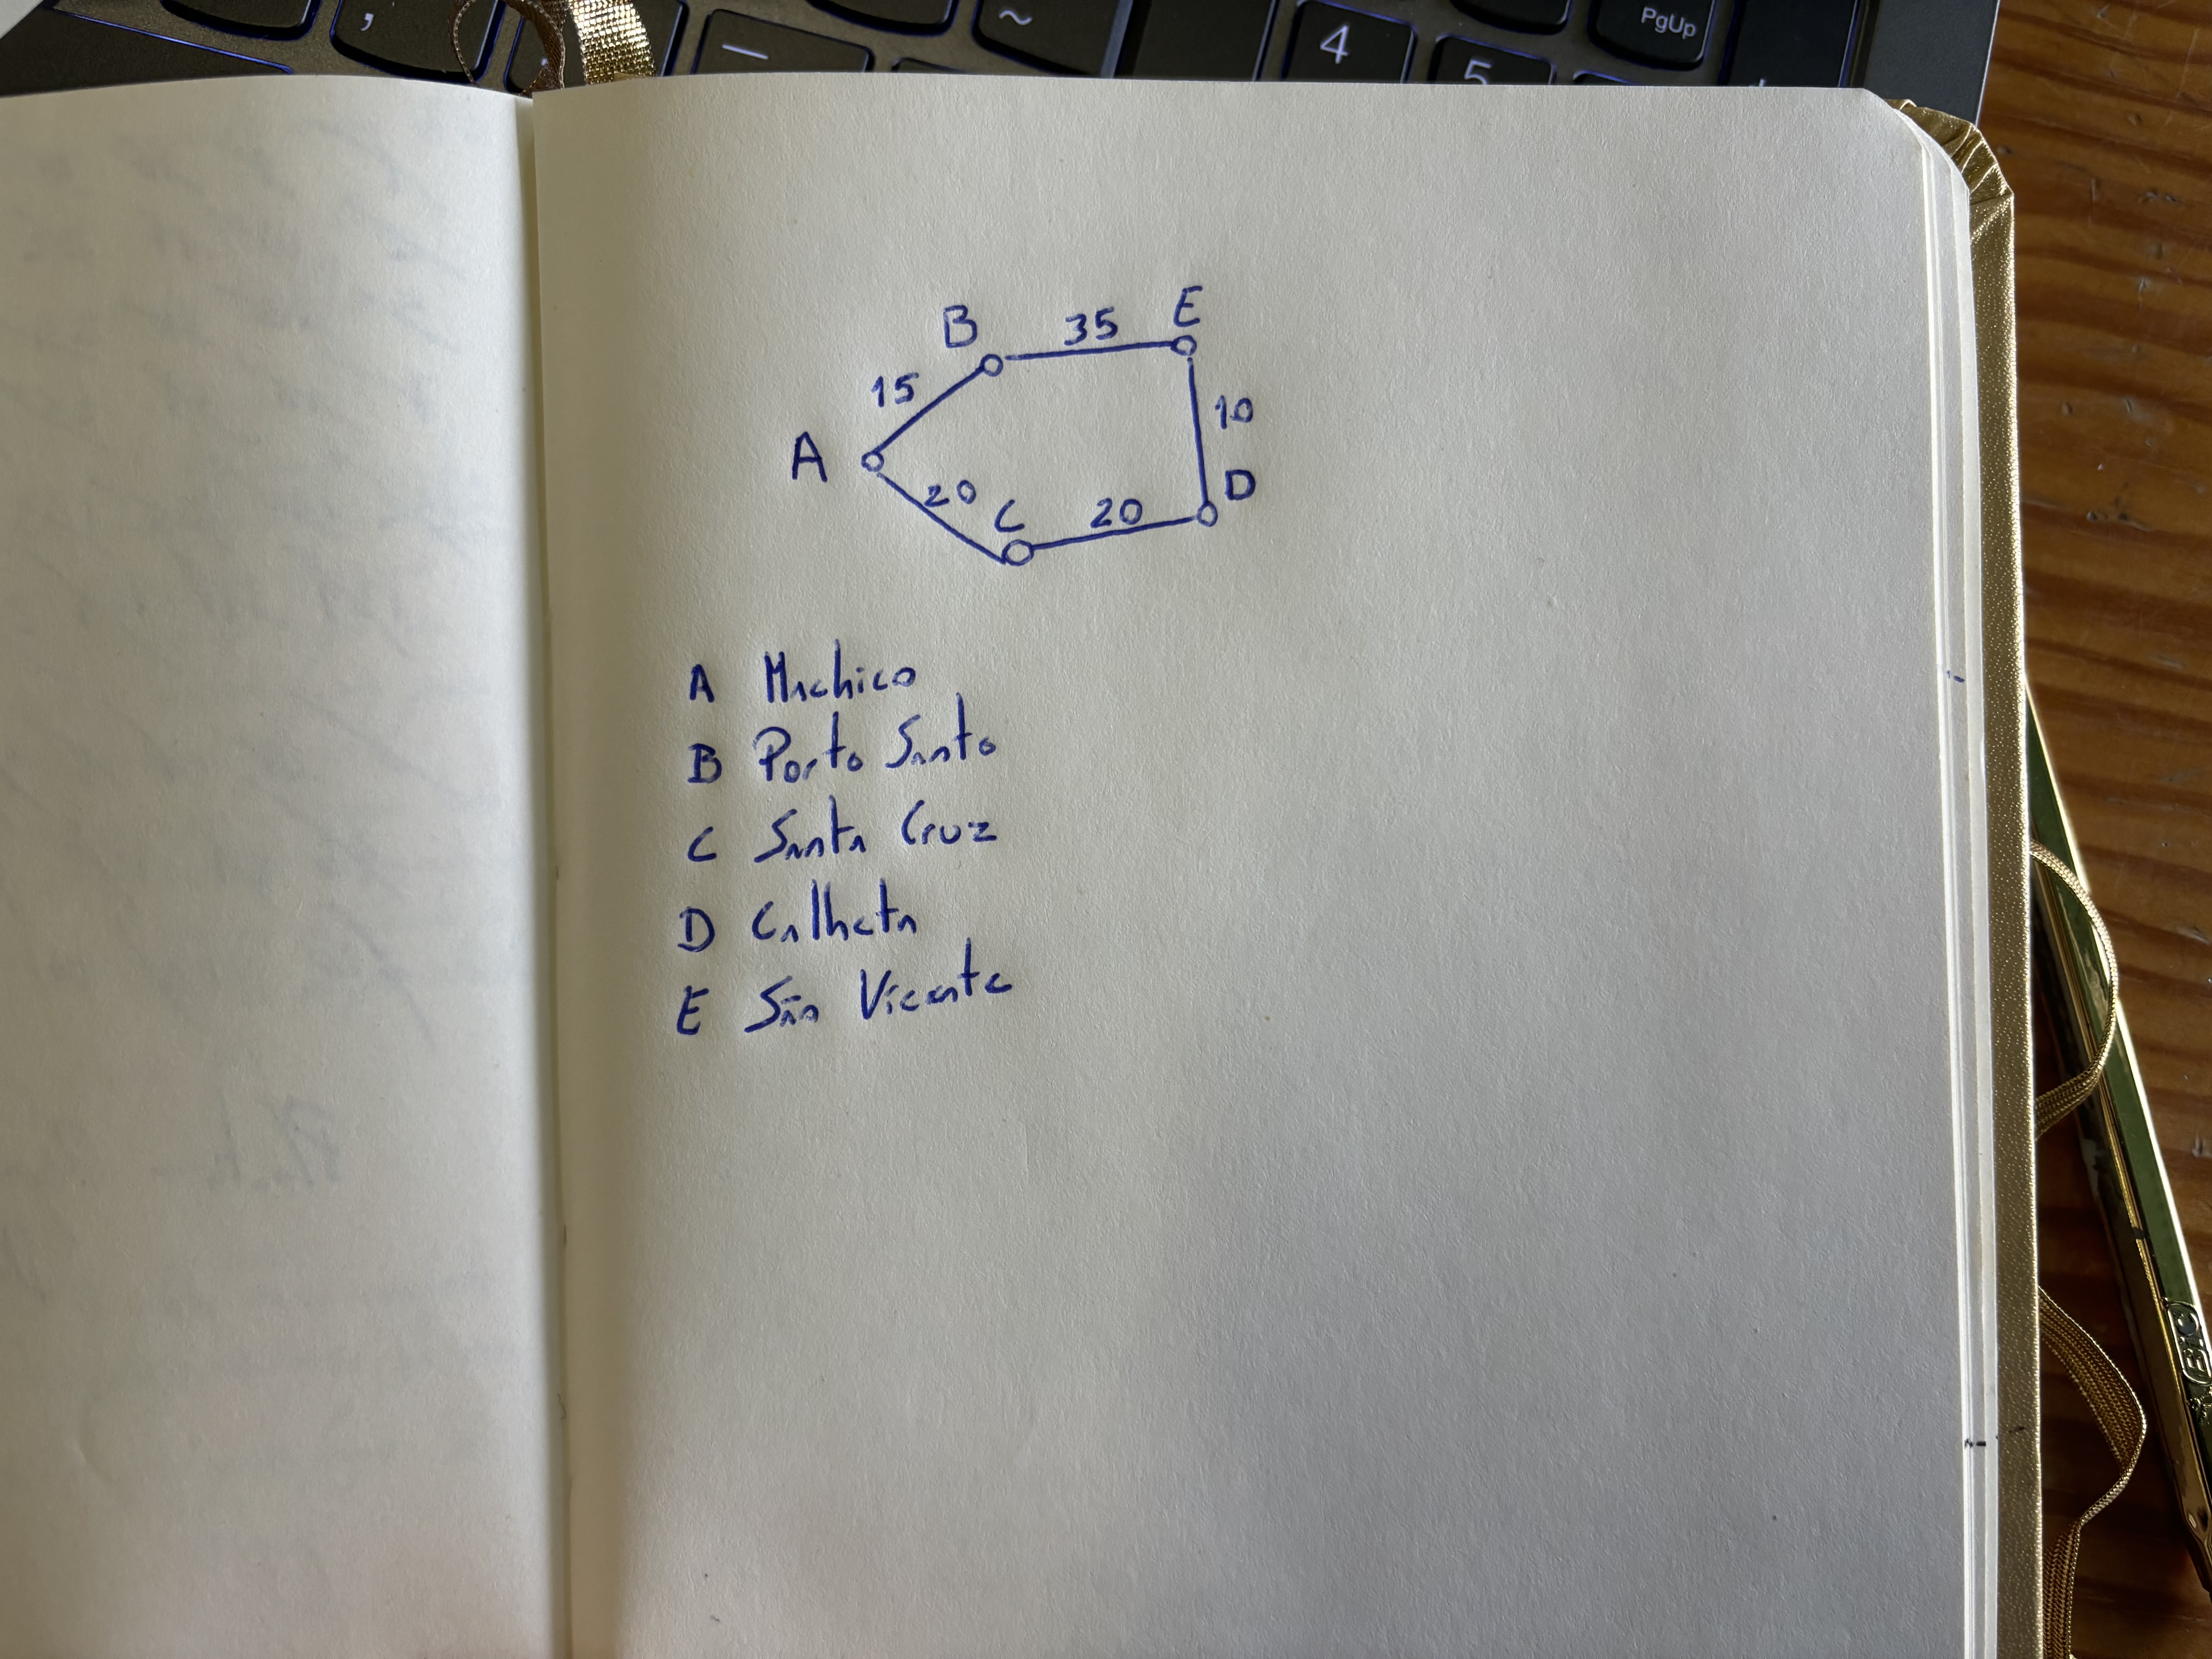 PgUp
,
—
~
4
5
B
35
E
15
10
A
20
C
20
D
A Machico
B Porto Santo
C Santa Cruz
D Calheta
E São Vicente
BIC